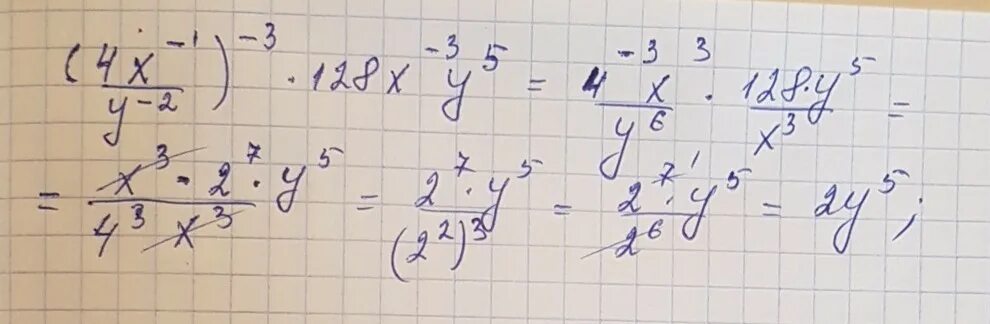 (4x⁻¹/y⁻²)⁻³ · 128x⁻³y⁵ = 4⁻³x³/y⁶ · 128·y⁵/x³ =
= x³·2⁷·y⁵/4³x³ = 2⁷·y⁵/(2²)³ = 2⁷¹·y⁵/2⁶ = 2y⁵;